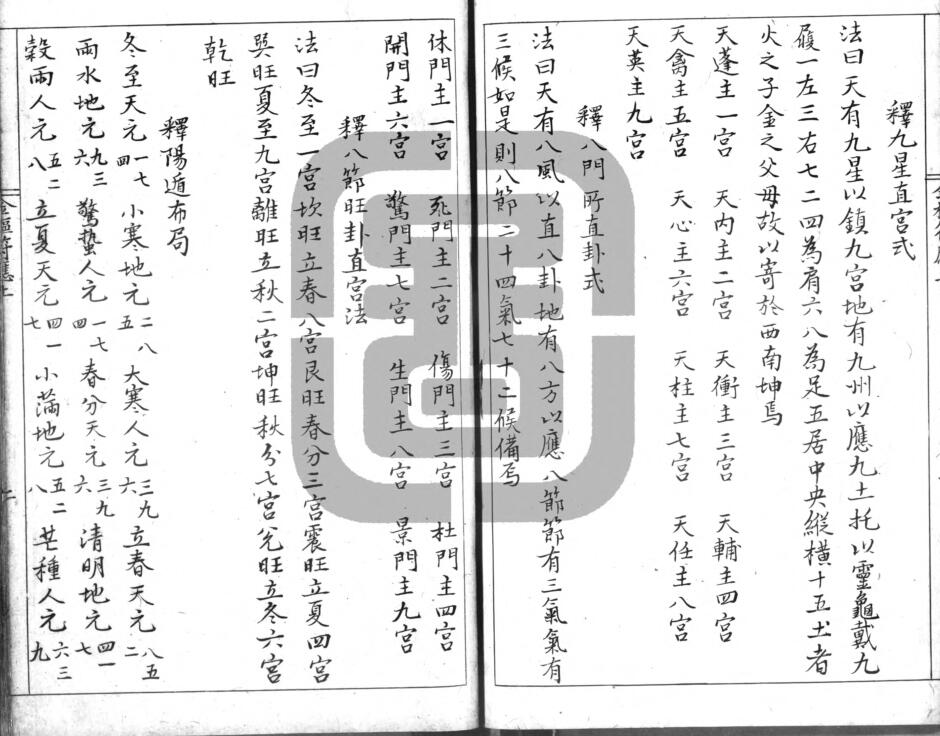 釋九星直宮式
法曰天有九星以鎮九宮地有九州以應九土托以靈龜戴九
履一左三右七二四為肩六八為足五居中央縱橫十五土者
火之子金之父母故以寄於西南坤焉
天蓬主一宮 天內主二宮 天衝主三宮 天輔主四宮
天禽主五宮 天心主六宮 天柱主七宮 天任主八宮
天英主九宮
釋八門所直卦式
法曰天有八風以直八卦地有八方以應八節節有三氣氣有
三候如是則八節二十四氣七十二候備焉
休門主一宮 死門主二宮 傷門主三宮 杜門主四宮
開門主六宮 驚門主七宮 生門主八宮 景門主九宮
釋八節旺卦直宮法
法曰冬至一宮坎旺立春八宮艮旺春分三宮震旺立夏四宮
巽旺夏至九宮離旺立秋二宮坤旺秋分七宮兌旺立冬六宮
乾旺
釋陽遁布局
冬至天元一七四 小寒地元二八五 大寒人元三九六 立春天元八五二
雨水地元九三六 驚蟄人元一七四 春分天元三九六 清明地元四一七
穀雨人元五二八 立夏天元四一七 小滿地元五二八 芒種人元六三九